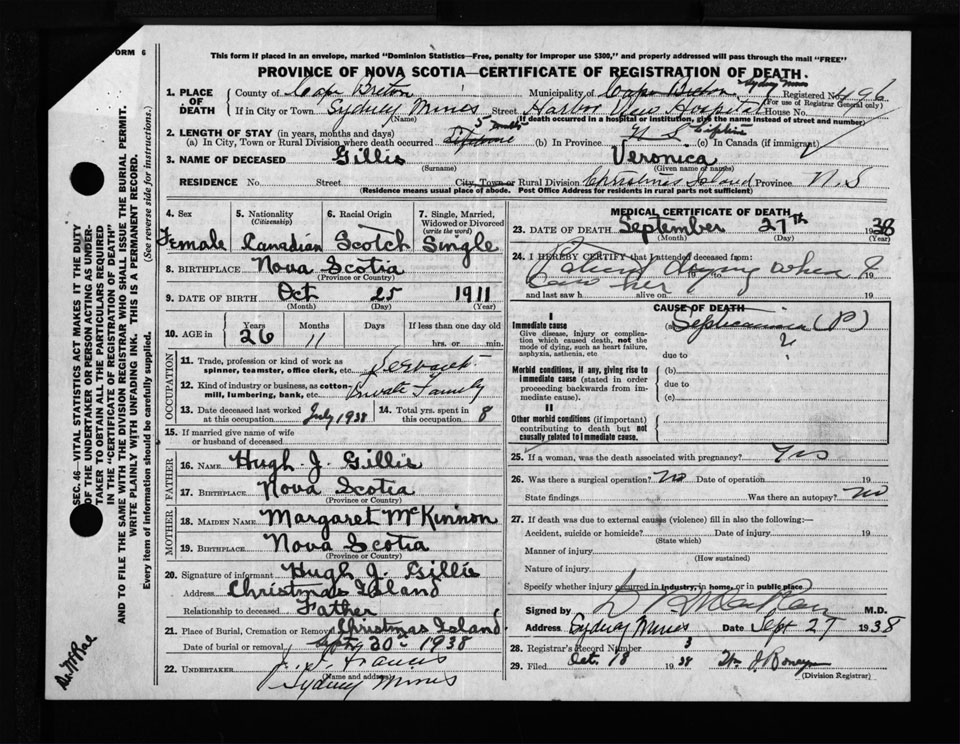 FORM 6
This form if placed in an envelope, marked "Dominion Statistics—Free, penalty for improper use $300," and properly addressed will pass through the mail "FREE"
PROVINCE OF NOVA SCOTIA—CERTIFICATE OF REGISTRATION OF DEATH.
1. PLACE OF DEATH County of Cape Breton Municipality of Cape Breton Sydney Mines Registered No. 496
(For use of Registrar General only)
If in City or Town Sydney Mines Street Harbor View Hospital House No.
(Name) (If death occurred in a hospital or institution, give the name instead of street and number)
2. LENGTH OF STAY (in years, months and days)
(a) In City, Town or Rural Division where death occurred 5 (b) In Province N S (c) In Canada (if immigrant)
3. NAME OF DECEASED Gillis Veronica
(Surname) (Given name or names)
RESIDENCE No. Street City, Town or Rural Division Christmas Island Province N. S
(Residence means usual place of abode. Post Office Address for residents in rural parts not sufficient)
4. Sex Female
5. Nationality (Citizenship) Canadian
6. Racial Origin Scotch
7. Single, Married, Widowed or Divorced (write the word) Single
8. BIRTHPLACE Nova Scotia
(Province or Country)
9. DATE OF BIRTH Oct 25 1911
(Month) (Day) (Year)
10. AGE in Years 26 Months 11 Days If less than one day old hrs. or min.
OCCUPATION
11. Trade, profession or kind of work as spinner, teamster, office clerk, etc. Servant
12. Kind of industry or business, as cotton-mill, lumbering, bank, etc. Private Family
13. Date deceased last worked at this occupation July 1938 14. Total yrs. spent in this occupation 8
15. If married give name of wife or husband of deceased
FATHER
16. NAME Hugh J. Gillis
17. BIRTHPLACE Nova Scotia
(Province or Country)
MOTHER
18. MAIDEN NAME Margaret McKinnon
19. BIRTHPLACE Nova Scotia
(Province or Country)
20. Signature of informant Hugh J. Gillis
Address Christmas Island
Relationship to deceased Father
21. Place of Burial, Cremation or Removal Christmas Island
Date of burial or removal Sept 30th 1938
22. UNDERTAKER Francis
(Name and address) Sydney Mines
MEDICAL CERTIFICATE OF DEATH
23. DATE OF DEATH September 27th 1938
(Month) (Day) (Year)
24. I HEREBY CERTIFY that I attended deceased from:
Patient dying when I
saw her
19 to 19
and last saw h alive on 19
CAUSE OF DEATH
I
Immediate cause
Give disease, injury or complication which caused death, not the mode of dying, such as heart failure, asphyxia, asthenia, etc
(a) Septicaemia (P)
due to
Morbid conditions, if any, giving rise to immediate cause (stated in order proceeding backwards from immediate cause).
(b)
due to
(c)
II
Other morbid conditions (if important) contributing to death but not causally related to immediate cause.
25. If a woman, was the death associated with pregnancy? Yes
26. Was there a surgical operation? No Date of operation 19
State findings Was there an autopsy? No
27. If death was due to external causes (violence) fill in also the following:—
Accident, suicide or homicide? Date of injury 19
(State which)
Manner of injury
(How sustained)
Nature of injury
Specify whether injury occurred in industry, in home, or in public place
Signed by M.D.
Address Sydney Mines Date Sept 27 1938
28. Registrar's Record Number 3
29. Filed Oct. 18 1938
(Division Registrar)
SEC. 46—VITAL STATISTICS ACT MAKES IT THE DUTY
OF THE UNDERTAKER OR PERSON ACTING AS UNDERTAKER
TO OBTAIN ALL THE PARTICULARS REQUIRED
IN THE "CERTIFICATE OF REGISTRATION OF DEATH"
AND TO FILE THE SAME WITH THE DIVISION REGISTRAR WHO SHALL ISSUE THE BURIAL PERMIT.
WRITE PLAINLY WITH UNFADING INK. THIS IS A PERMANENT RECORD.
Every item of information should be carefully supplied. (See reverse side for instructions.)
Dr. McRae